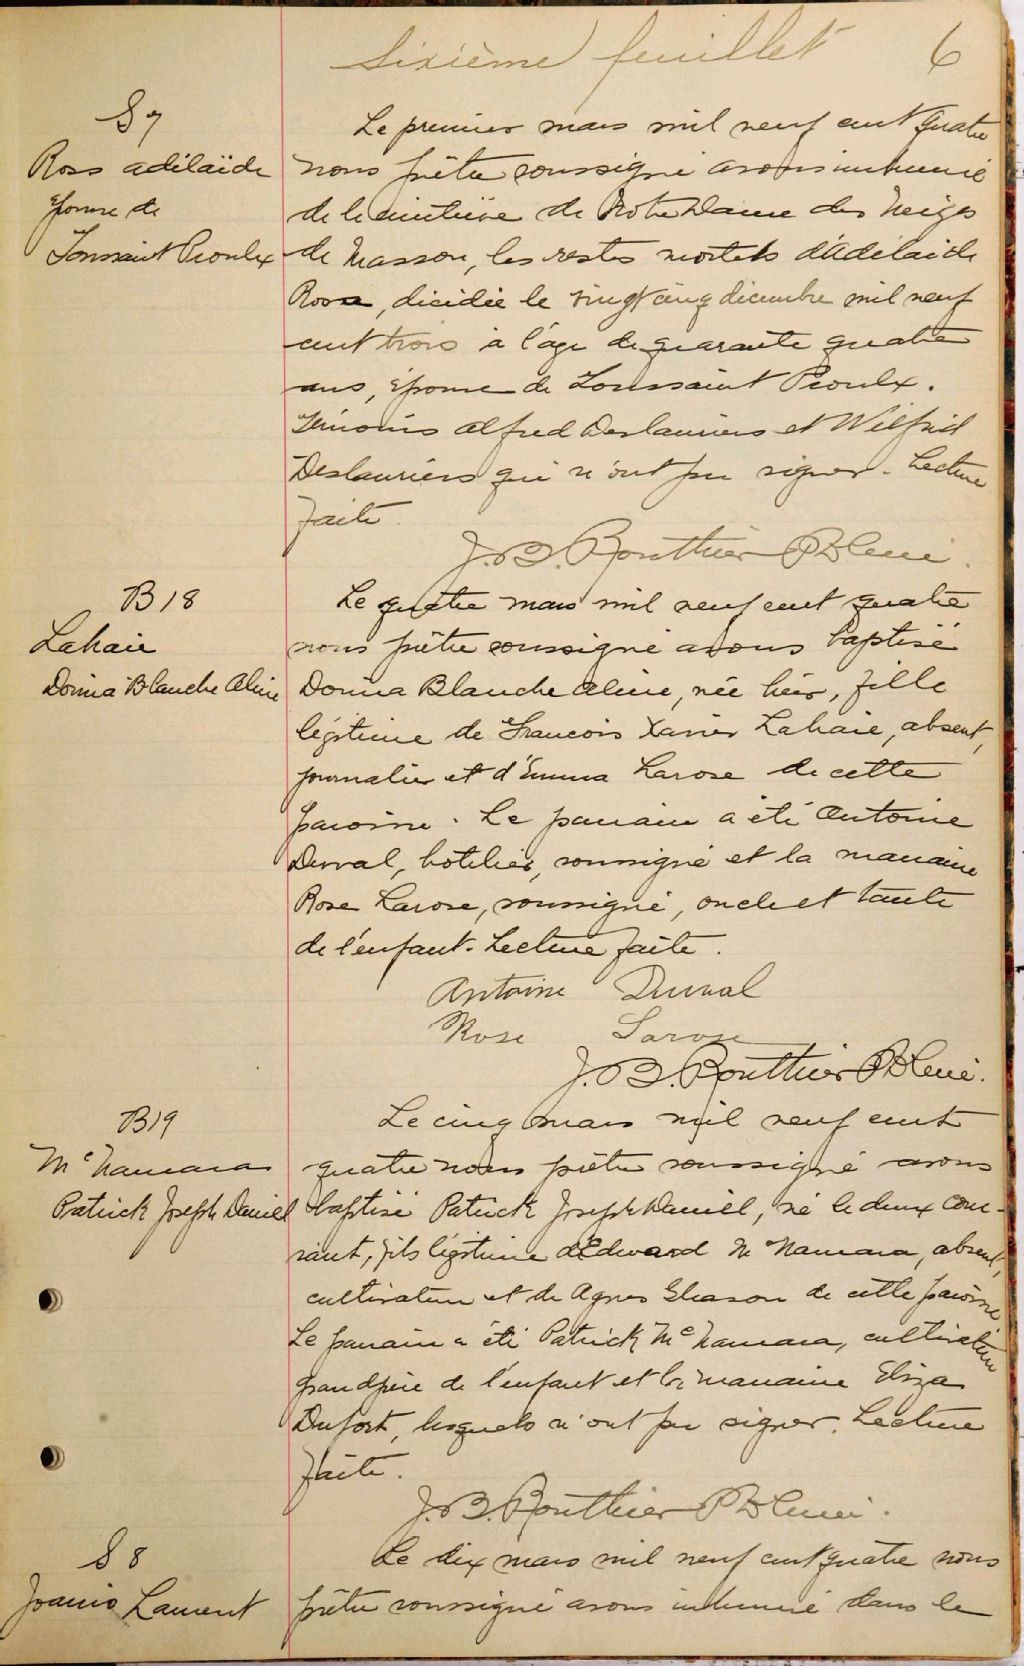 Sixième feuillet 6
S 7
Ross Adélaïde
épouse de
Toussaint Proulx
Le premier mars mil neuf cent quatre
nous prêtre soussigné avons inhumé
de le cimetière de Notre Dame des Neiges
de Masson, les restes mortels d'Adélaide
Ross, décidée le vingt cinq décembre mil neuf
cent trois à l'âge de quarante quatre
ans, épouse de Toussaint Proulx.
Témoins Alfred Deslauriers et Wilfrid
Deslauriers qui n'ont pu signer - Lecture
faite.
J. B. Bouthier Ptre Curé.
B 18
Lahaie
Dorina Blanche Aline
Le quatre mars mil neuf cent quatre
nous prêtre soussigné avons baptisé
Dorina Blanche Aline, née hier, fille
légitime de Francois Xavier Lahaie, absent,
journalier et d'Emma Larose de cette
paroisse. Le parrain a été Antoine
Duval, hotelier, soussigné et la marraine
Rose Larose, soussigné, oncle et tante
de l'enfant. Lecture faite.
Antoine Duval
Rose Larose
J. B. Bouthier Ptre Curé.
B 19
Mc Namara
Patrick Joseph Daniel
Le cinq mars mil neuf cent
quatre nous prêtre soussigné avons
baptisé Patrick Joseph Daniel, né le deux cou-
rant, fils légitime d'Edward Mc Namara, absent,
cultivateur et de Agnes Gleason de cette paroisse
Le parrain a été Patrick Mc Namara, cultivateur
grandpère de l'enfant et la marraine Eliza
Dufort, lesquels n'ont pu signer. Lecture
faite.
J. B. Bouthier Ptre Curé.
S 8
Laurent
Le dix mars mil neuf cent quatre nous
prêtre soussigné avons inhumé dans le